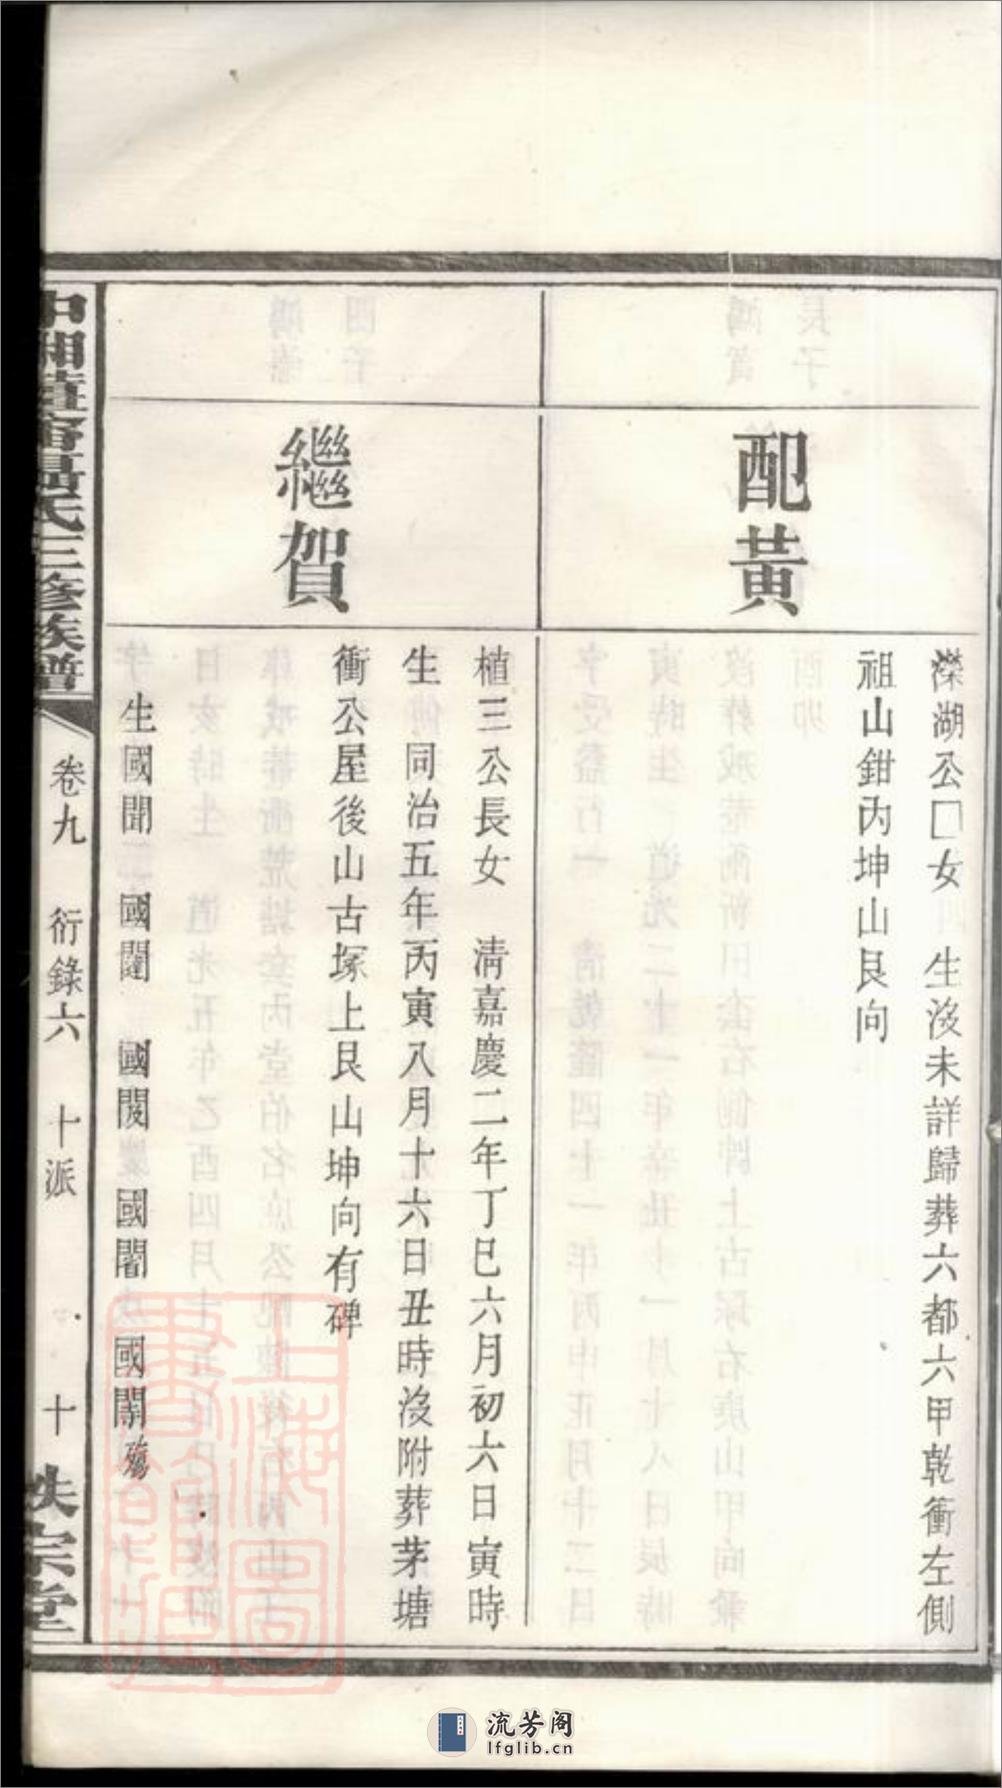 配黃
濴湖公囗女 生沒未詳歸葬六都六甲乾衝左側
祖山鉗內坤山艮向
繼賀
植三公長女 淸嘉慶二年丁巳六月初六日寅時
生 同治五年丙寅八月十六日丑時沒附葬茅塘
衝公屋後山古塚上艮山坤向有碑
生國聞 國闥 國閔 國闇 國闈殤
氏三修族譜
卷九 衍錄六 十派 十
宗堂
上海圖書館藏
流芳阁
lfglib.cn